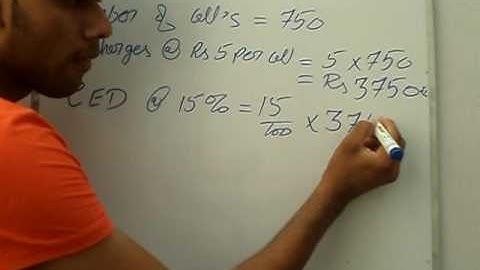 ber of call's = 750
harges @ Rs 5 per call = 5 x 750
= Rs 3750
CED @ 15% = 15/100 x 37